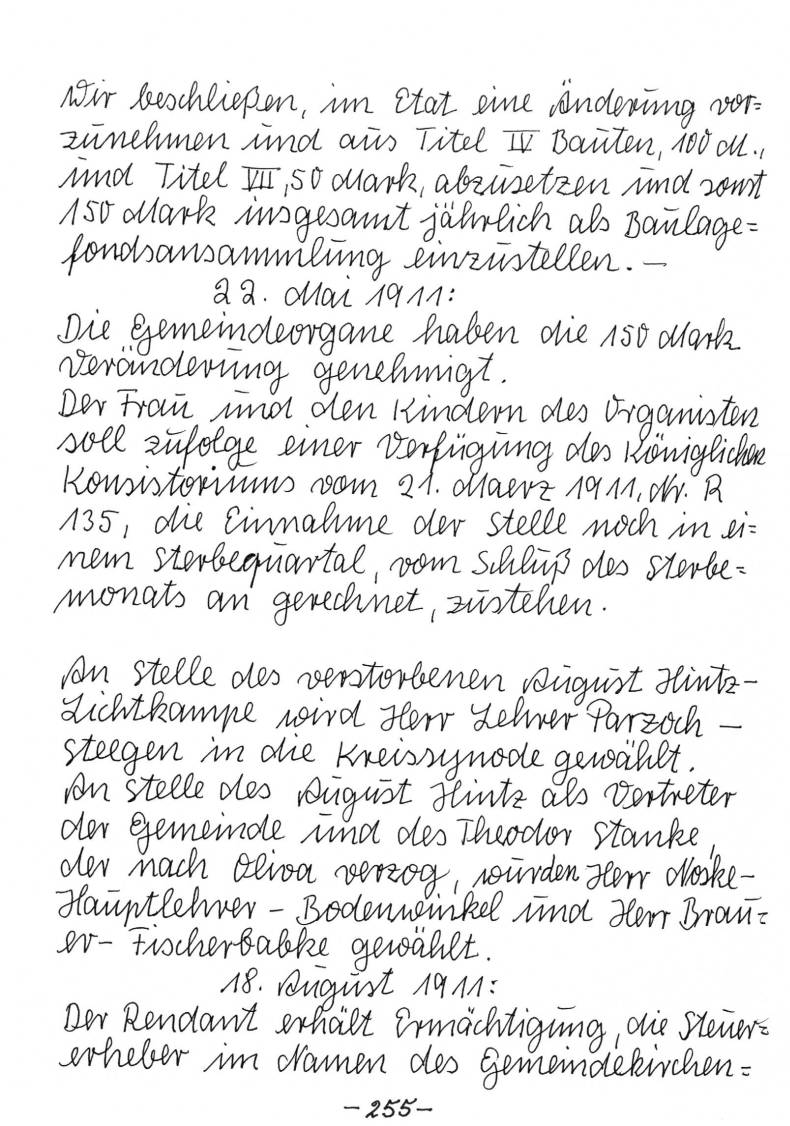 Wir beschließen, im Etat eine Änderung vor=
zunehmen und aus Titel IV Bauten, 100 M.,
und Titel VII, 50 Mark, abzusetzen und sonst
150 Mark insgesamt jährlich als Baulage=
fondsansammlung einzustellen. —
22. Mai 1911:
Die Gemeindeorgane haben die 150 Mark
Veränderung genehmigt.
Der Frau und den Kindern des Organisten
soll zufolge einer Verfügung des Königlichen
Konsistoriums vom 21. Maerz 1911, Nr. R
135, die Einnahme der Stelle noch in ei=
nem Sterbequartal, vom Schluß des Sterbe=
monats an gerechnet, zustehen.
An Stelle des verstorbenen August Hintz-
Lichtkampe wird Herr Lehrer Parzoch —
Steegen in die Kreissynode gewählt.
An Stelle des August Hintz als Vertreter
der Gemeinde und des Theodor Stanke,
der nach Oliva verzog, wurden Herr Noske-
Hauptlehrer - Bodenwinkel und Herr Brau=
er- Fischerbabke gewählt.
18. August 1911:
Der Rendant erhält Ermächtigung, die Steuer=
erheber im Namen des Gemeindekirchen=
- 255 -